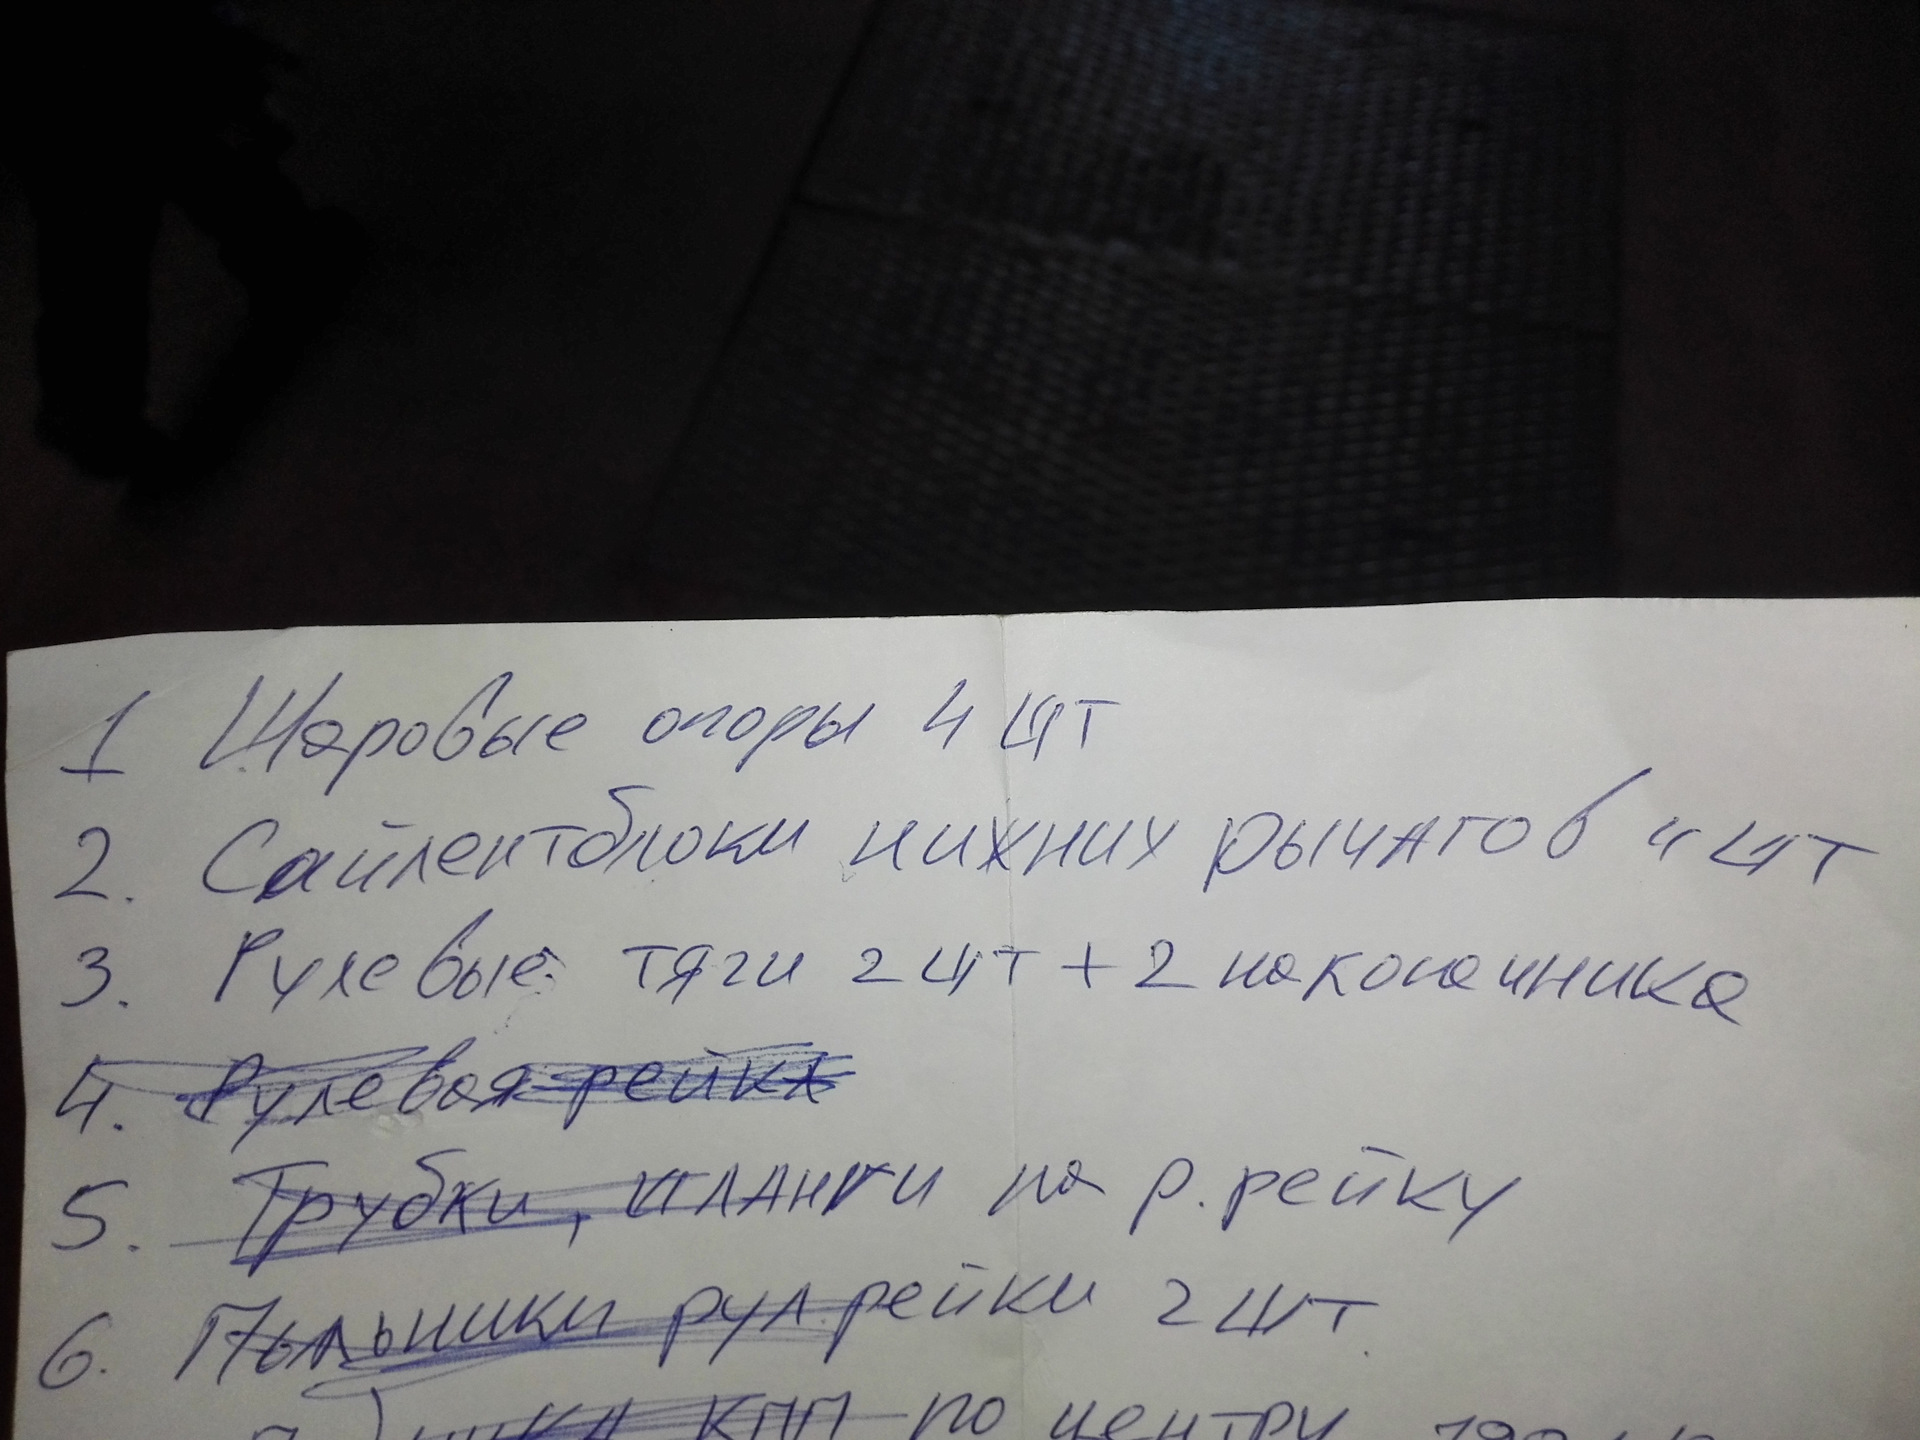 1 Шаровые опоры 4 шт
2. Сайлентблоки нихних рычагов 4 шт
3. Рулевые тяги 2 шт + 2 наконечника
4. Рулевая рейка
5. Трубки, шланги на р. рейку
6. Пыльники рул. рейки 2 шт.
КПП по центру